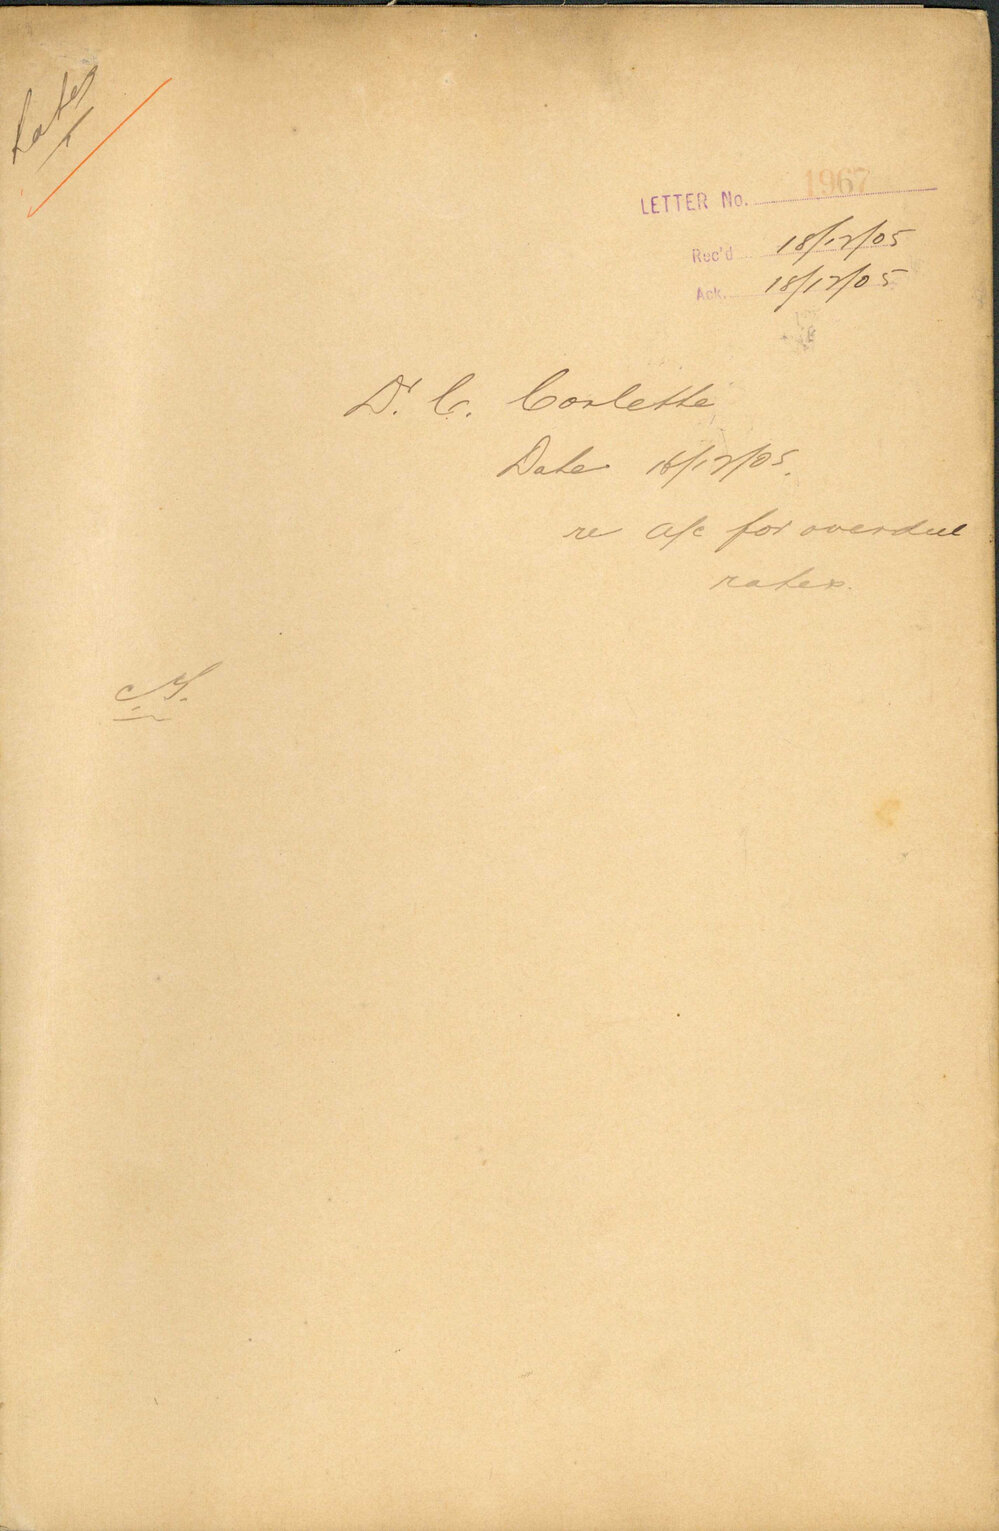 Rates
LETTER No. 1967
Rec'd 18/12/05
Ack. 18/12/05
Dr. C. Corlette
Date 18/12/05.
re a/c for overdue
rates.